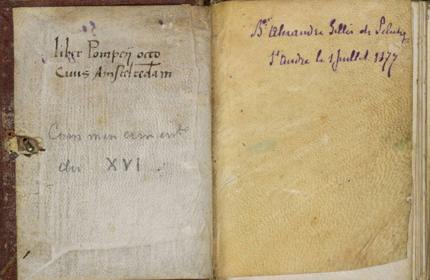 liber Pompeij occo
Civis Amstelredam
Commencement
du XVI.
Bon Alexandre Gillès de Pelichy
St André le 1 juillet 1877